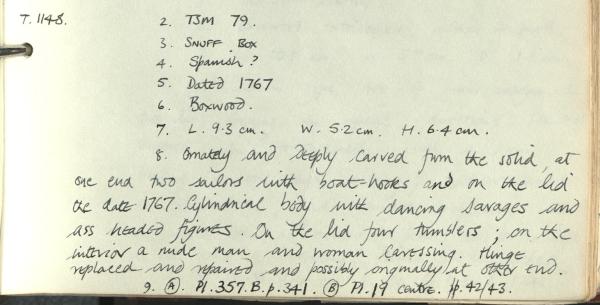 T.1148. 2. TSM 79.
3. SNUFF BOX
4. Spanish?
5. Dated 1767
6. Boxwood.
7. L. 9.3 cm. W. 5.2 cm. H. 6.4 cm.
8. Ornately and Deeply Carved from the solid, at
one end two sailors with boat-hooks and on the lid
the date 1767. Cylindrical body with dancing savages and
ass headed figures. On the lid four tumblers; on the
interior a nude man and woman caressing. Hinge
replaced and repaired and possibly originally at other end.
9. A. Pl. 357.B.p.341. B Pl. 19 centre. pp. 42/43.